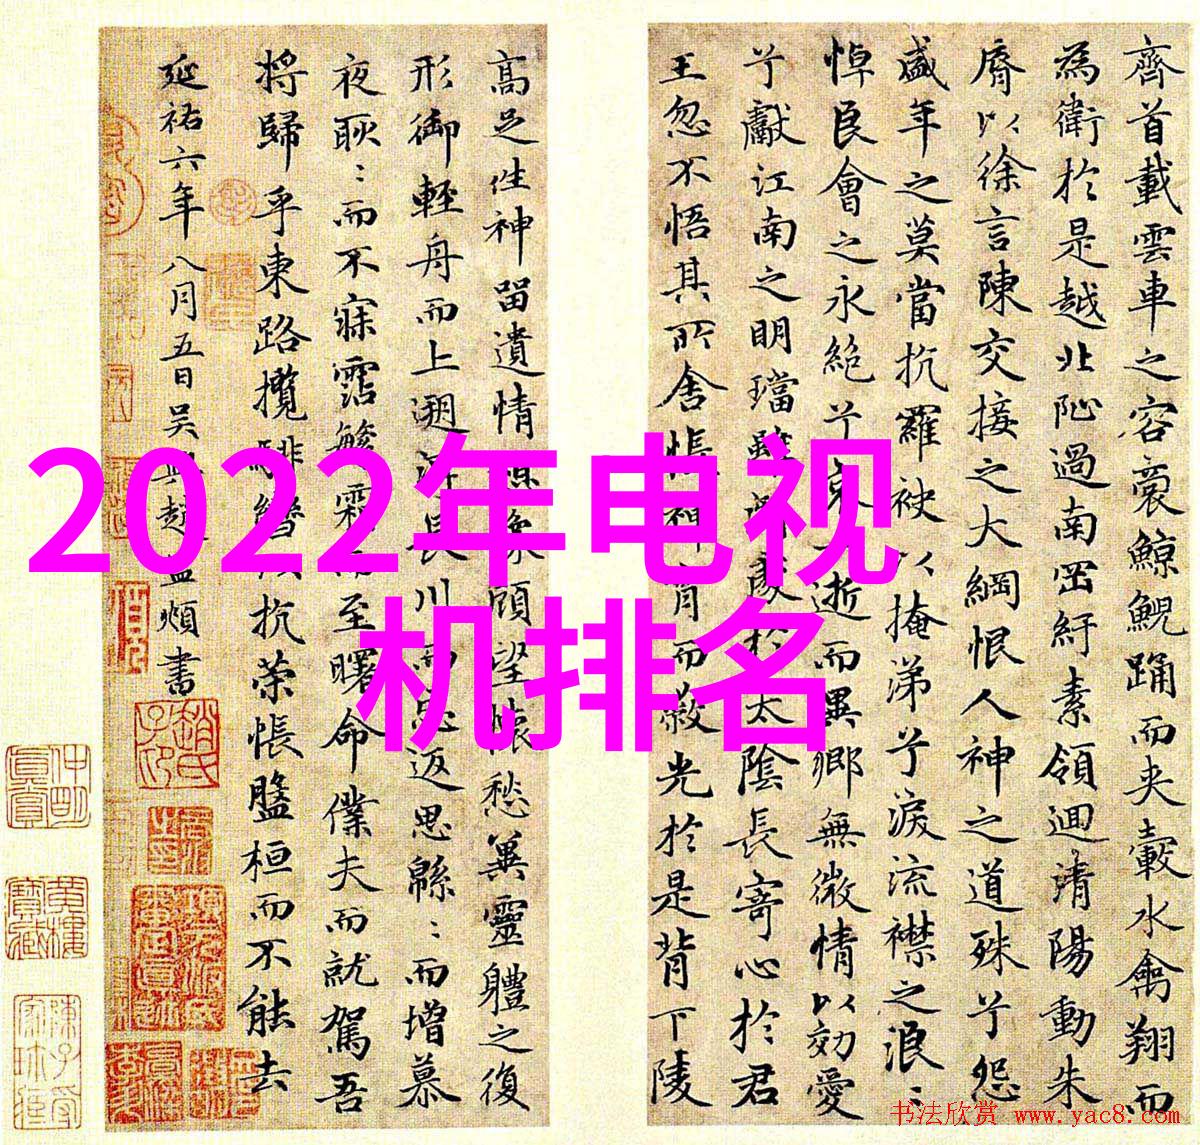 齊首載雲車之容裔鯨鯢踊而夾轂水禽翔而
為衛於是越北沚過南岡紆素領迴清陽動朱
脣以徐言陳交接之大綱恨人神之道殊兮怨
盛年之莫當抗羅袂以掩涕兮淚流襟之浪〻
悼良會之永絕兮哀逝而異鄉無微情以効愛
兮獻江南之明璫雖處於太陰長寄心於君
王忽不悟其所舍悵神宵而蔽光於是背下陵
高足往神留遺情想象顧望懷愁冀靈體之復
形御輕舟而上遡浮長川而忘返思緜〻而增慕
夜耿〻而不寐霑繁霜而至曙命僕夫而就駕吾
將歸乎東路攬騑轡以抗策悵盤桓而不能去
延祐六年八月五日吳興趙孟頫書
2022年电视
机排名
书法欣赏 www.yac8.com